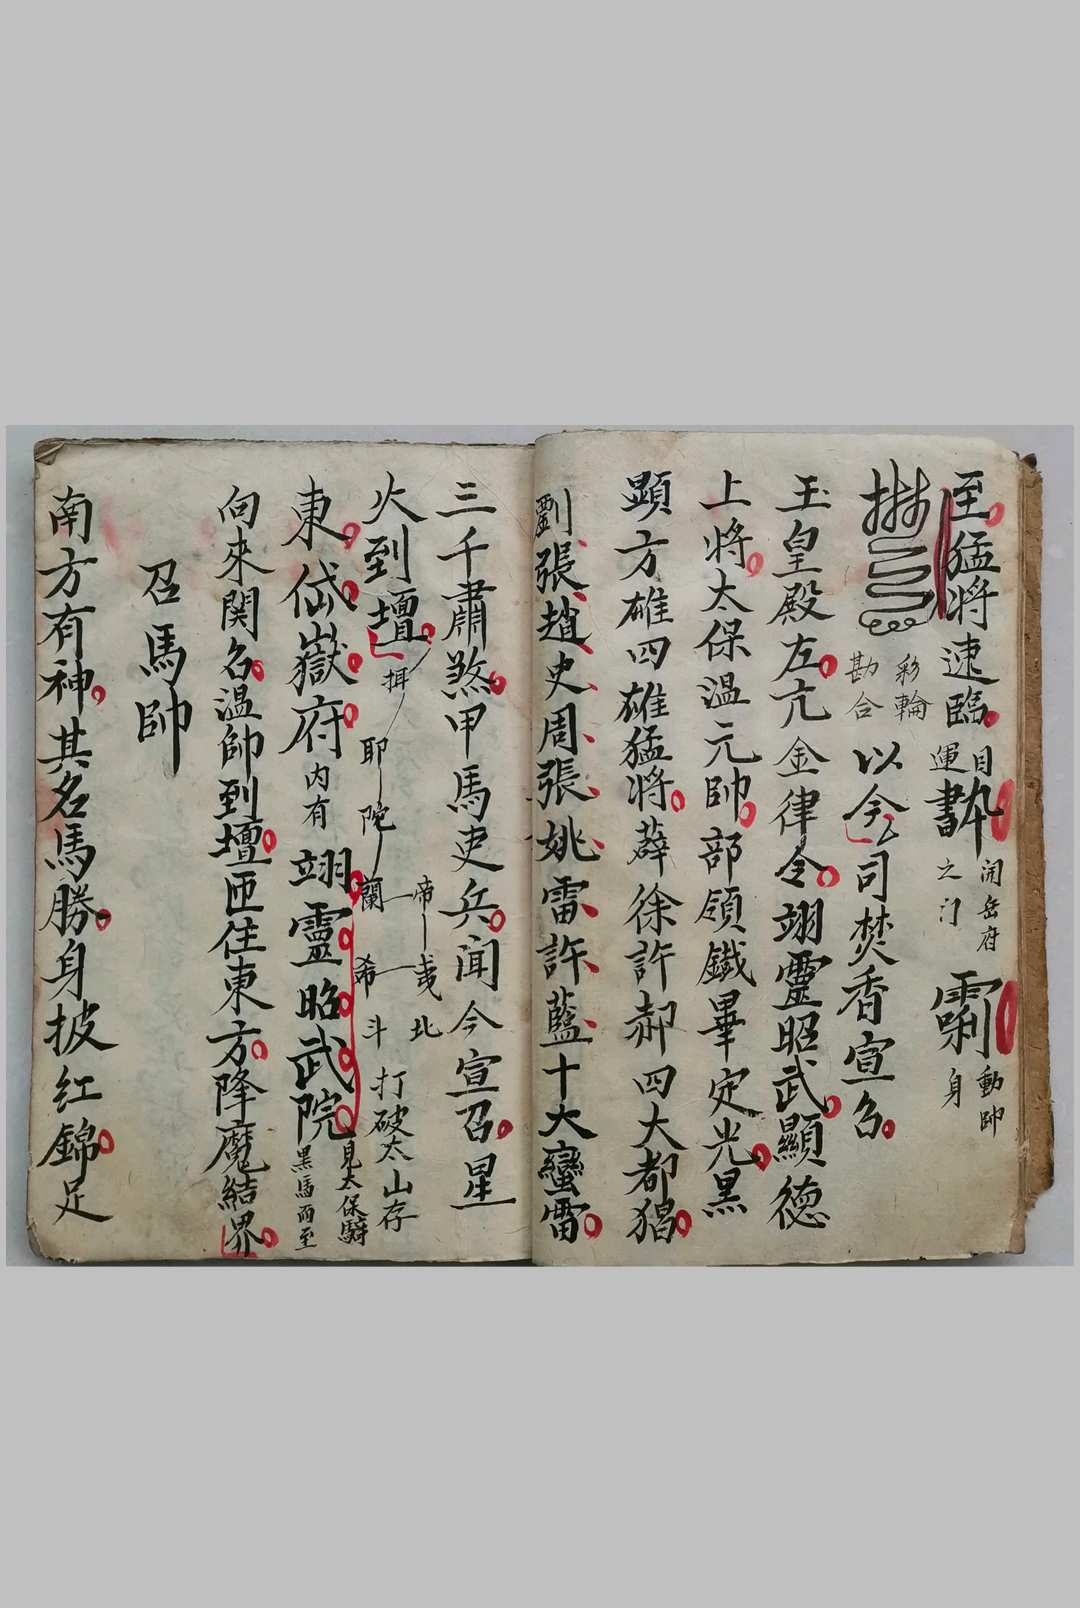 至猛將速臨目運開岳府之门動帥身
彩輪勘合以今司焚香宣名
玉皇殿左亢金律令翊靈昭武顯德
上將太保溫元帥部領鐵畢定光黑
顕方雄四雄猛將薛徐許郝四大都猖
劉張趙史周張姚雷許藍十大蠻雷
三千肅煞甲馬吏兵聞今宣召星
火到壇
揖耶陀蘭希斗
帝夷北
打破太山存
東岱嶽府内有翊靈昭武院見太保騎黑馬而至
向來関名溫帥到壇匝住東方降魔結界
召馬帥
南方有神其名馬勝身披红錦足